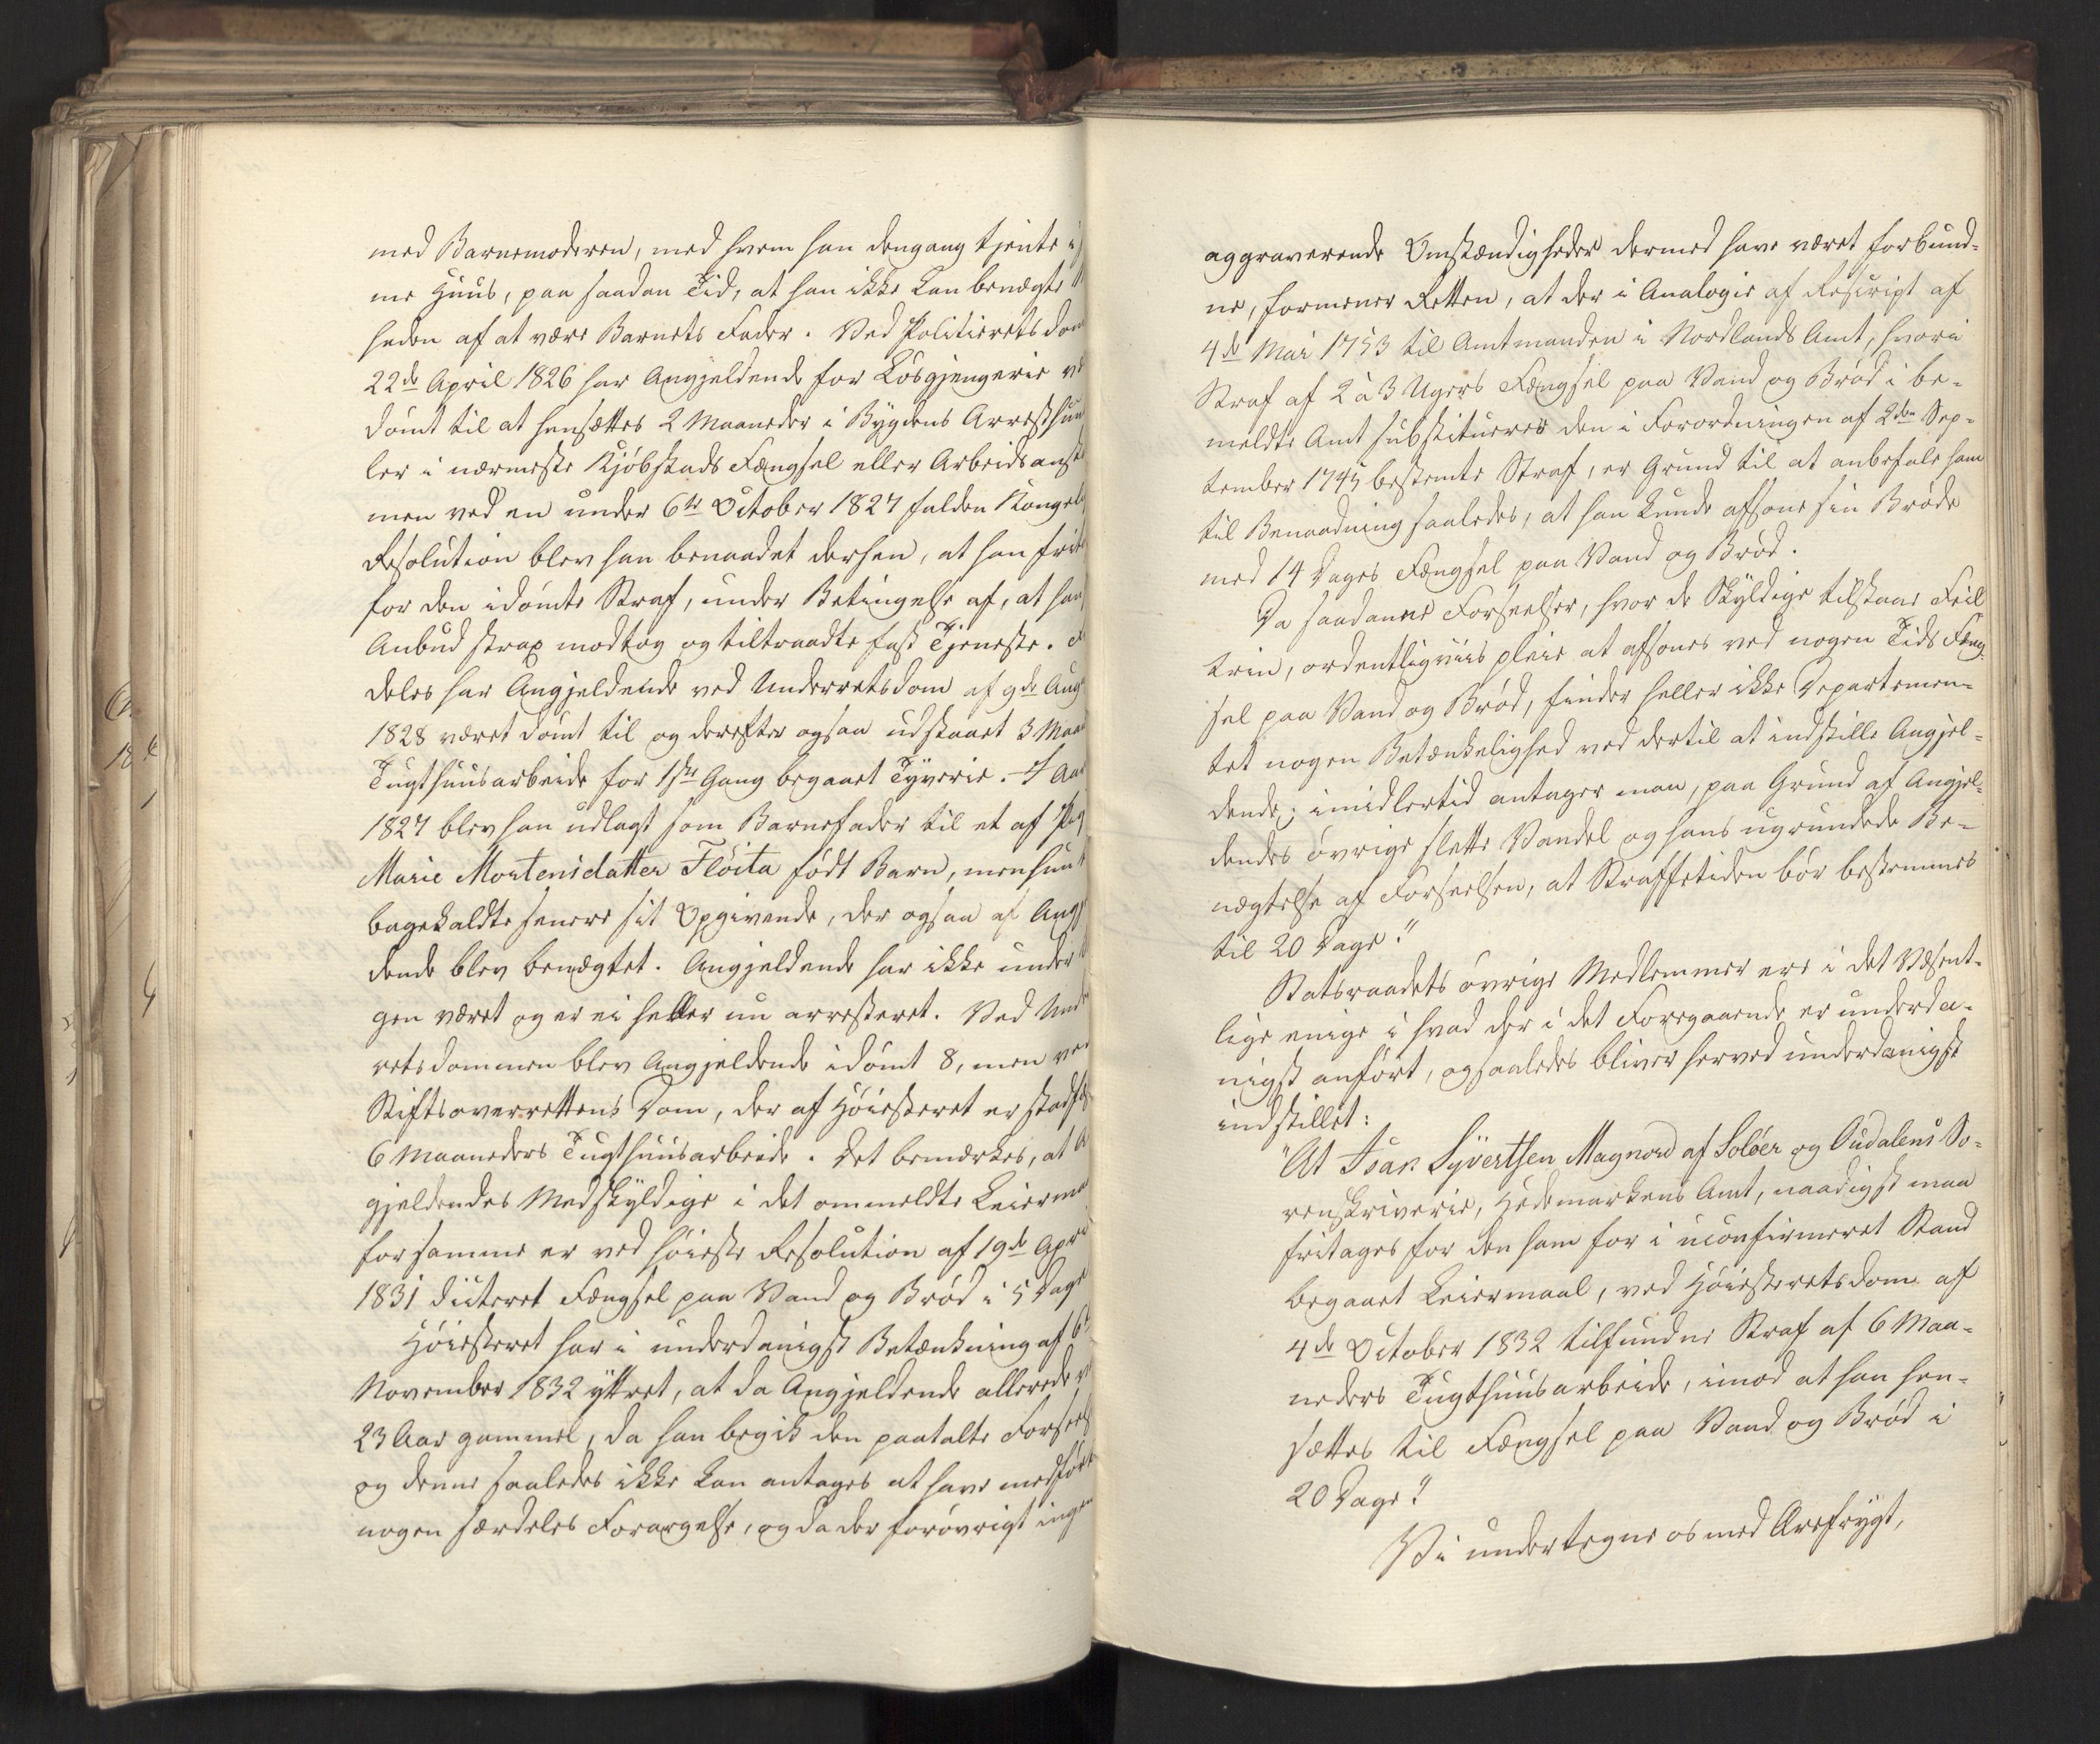 med Barnemoderen, med hvem han dengang tjente i
me Huus, paa saadan Tid, at han ikke kan benægte
heden af at være Barnets Fader. Ved Politierets dom
22de April 1826 har Angjeldende for Løsgjengerie
dømt til at hensættes 2 Maaneder i Bygdens Arresthuus
ler i nærmeste Kjøbstads Fængsel eller Arbeidsanst
men ved en under 6te October 1827 falden Kongel
Resolution blev han benaadet derhen, at han frit
for den idømte Straf, under Betingelse af, at han
Anbud strax modtog og tiltraadte fast Tjeneste.
deles har Angjeldende ved Underretsdom af 9de Aug
1828 været dømt til og derefter ogsaa udstaaet 3 Maa
Tugthuusarbeide for 1ste Gang begaaet Tyverie. I Aar
1827 blev han udlagt som Barnefader til et af Pig
Marie Mortensdatter Fløita født Barn, men hun t
bagekaldte senere sit Opgivende, der ogsaa af Angj
dende blev benægtet. Angjeldende har ikke under
gen været og er ei heller nu arresteret. Ved Und
retsdommen blev Angjeldende idømt 8, men ved
Stiftsoverrettens Dom, der af Høiesteret er stadf
6 Maaneders Tugthuusarbeide. Det bemærkes, at
gjeldendes Medskyldige i det ommeldte Leierma
for samme er ved høieste Resolution af 19de Apri
1831 dicteret Fængsel paa Vand og Brød i 5 Dage
Høiesteret har i underdanigst Betænkning af 6te
November 1832 yttret, at da Angjeldende allerede v
23 Aar gammel, da han begik den paatalte Forseelse
og denne saaledes ikke kan antages at have medført
nogen særdeles Forargelse, og da der forøvrigt ingen
aggraverende Omstændigheder dermed have været forbund-
ne, formener Retten, at der i Analogie af Rescript af
4de Mai 1753 til Amtmanden i Nordlands Amt, hvori
Straf af 2 à 3 Ugers Fængsel paa Vand og Brød i be-
meldte Amt substitueres den i Forordningen af 2den Sep-
tember 1745 bestemte Straf, er Grund til at anbefale ham
til Benaadning saaledes, at han kunde afsone sin Brøde
med 14 Dages Fængsel paa Vand og Brød.
Da saadanne Forseelser, hvor de Skyldige tilstaae Feil
trin, ordentligviis pleie at afsones ved nogen Tids Fæng-
sel paa Vand og Brød, finder heller ikke Departemen-
tet nogen Betænkelighed ved dertil at indstille Angjel-
dende; imidlertid antager man, paa Grund af Angjel-
dendes øvrige slette Vandel og hans ugrundede Be-
nægtelse af Forseelsen, at Straffetiden bør bestemmes
til 20 Dage."
Statsraadets øvrige Medlemmer ere i det Væsent-
lige enige i hvad der i det Foregaaende er underda-
nigst anført, og saaledes bliver herved underdanigst
indstillet:
"At Isak Syvertsen Magnord af Soløer og Oudalens So-
renskriverie, Hedemarkens Amt, naadigst maa
fritages for den ham for i uconfirmeret Stand
begaaet Leiermaal, ved Høiesteretsdom af
4de October 1832 tilfundne Straf af 6 Maa-
neders Tugthuusarbeide, imod at han hen-
sættes til Fængsel paa Vand og Brød i
20 Dage."
Vi undertegne os med Ærefrygt,